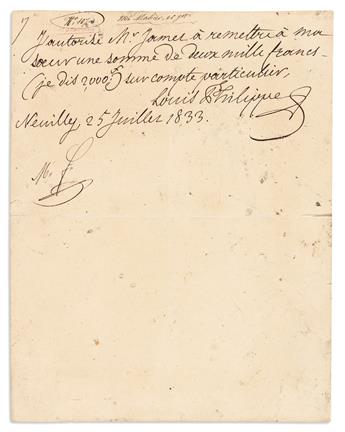 J'autorise Mr. Jamet à remettre à ma
sœur une somme de deux mille francs
(je dis 2,000f) sur compte particulier,
Louis Philippe
Neuilly, 25 Juillet 1833.